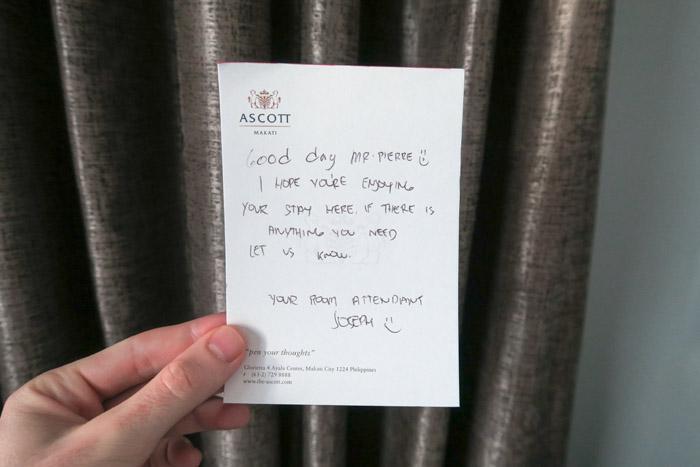 ASCOTT
MAKATI
Good day MR. PIERRE
I HOPE YOU'RE ENJOYING
YOUR STAY HERE. IF THERE IS
ANYTHING YOU NEED
LET US KNOW.
YOUR ROOM ATTENDANT
JOSEPH
"pen your thoughts"
Glorietta 4 Ayala Center, Makati City 1224 Philippines
(63-2) 729 8888
www.the-ascott.com